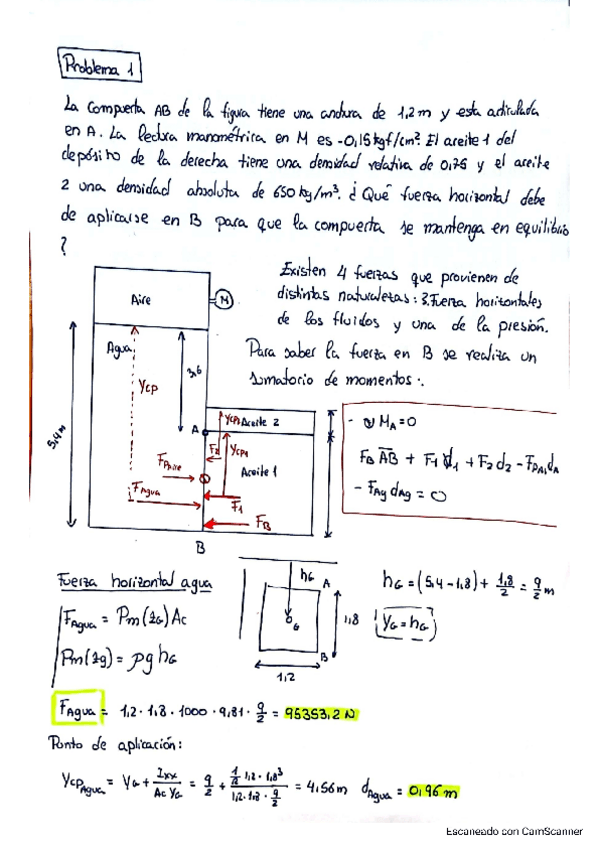 Problema 1
La compuerta AB de la figura tiene una anchura de 1,2 m y esta articulada
en A. La lectura manométrica en M es -0,15 kgf/cm². El aceite 1 del
depósito de la derecha tiene una densidad relativa de 0,75 y el aceite
2 una densidad absoluta de 650 kg/m³. ¿Qué fuerza horizontal debe
de aplicarse en B para que la compuerta se mantenga en equilibrio
?
Existen 4 fuerzas que provienen de
distintas naturalezas: 3 fuerza horizontales
de los fluidos y una de la presión.
Para saber la fuerza en B se realiza un
sumatorio de momentos.
Aire
M
Agua
Ycp
3,6
5,4 m
A
Ycp2 Aceite 2
F2
Ycp1
Aceite 1
FPaire
FAgua
F1
FB
B
- ↻ MA = 0
FB AB + F1 d1 + F2 d2 - FPAi dA
- FAg dAg = 0
Fuerza horizontal agua
FAgua = Pm(zG) Ac
Pm(zg) = ρg hG
hG
A
G
B
1,8
1,2
hG = (5,4 - 1,8) + 1,8/2 = 9/2 m
YG = hG
FAgua = 1,2 · 1,8 · 1000 · 9,81 · 9/2 = 95353,2 N
Punto de aplicación:
YcpAgua = YG + Ixx/(Ac YG) = 9/2 + (1/12 1,2 · 1,8³)/(1,2 · 1,8 · 9/2) = 4,56 m dAgua = 0,96 m
Escaneado con CamScanner